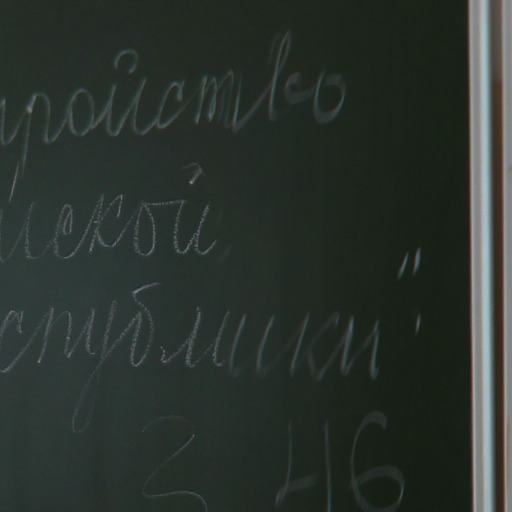 ройство
ской
спублики".
3 46